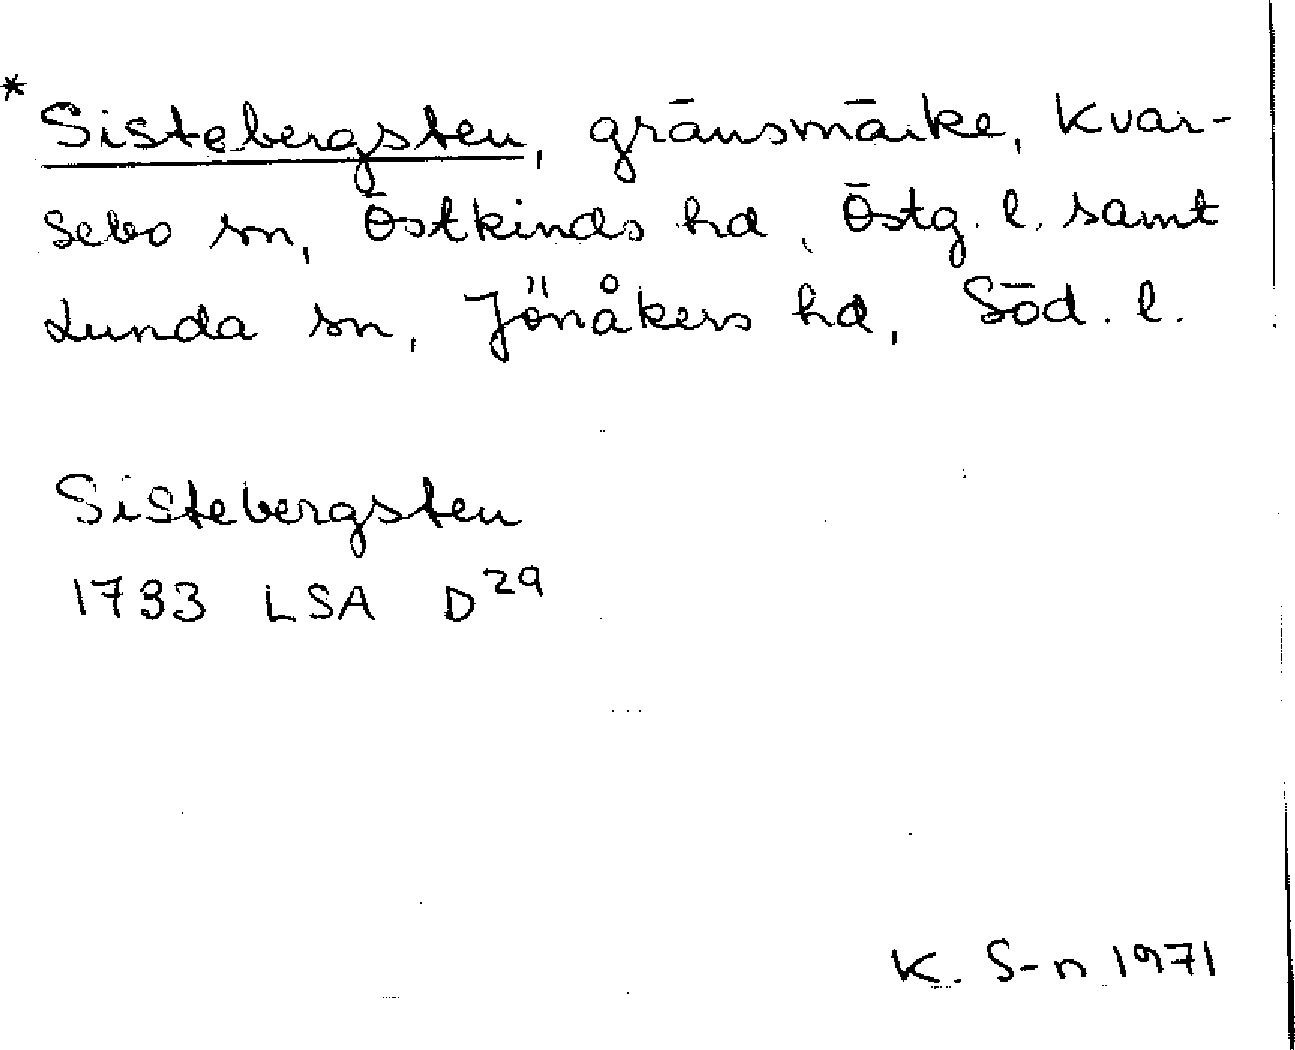 * Sistebergsten, gränsmärke, Kvar-
sebo sn, Östkinds hd, Östg. l. samt
Lunda sn, Jönåkers hd, Söd. l.
Sistebergsten
1733 LSA D29
K. S-n 1971